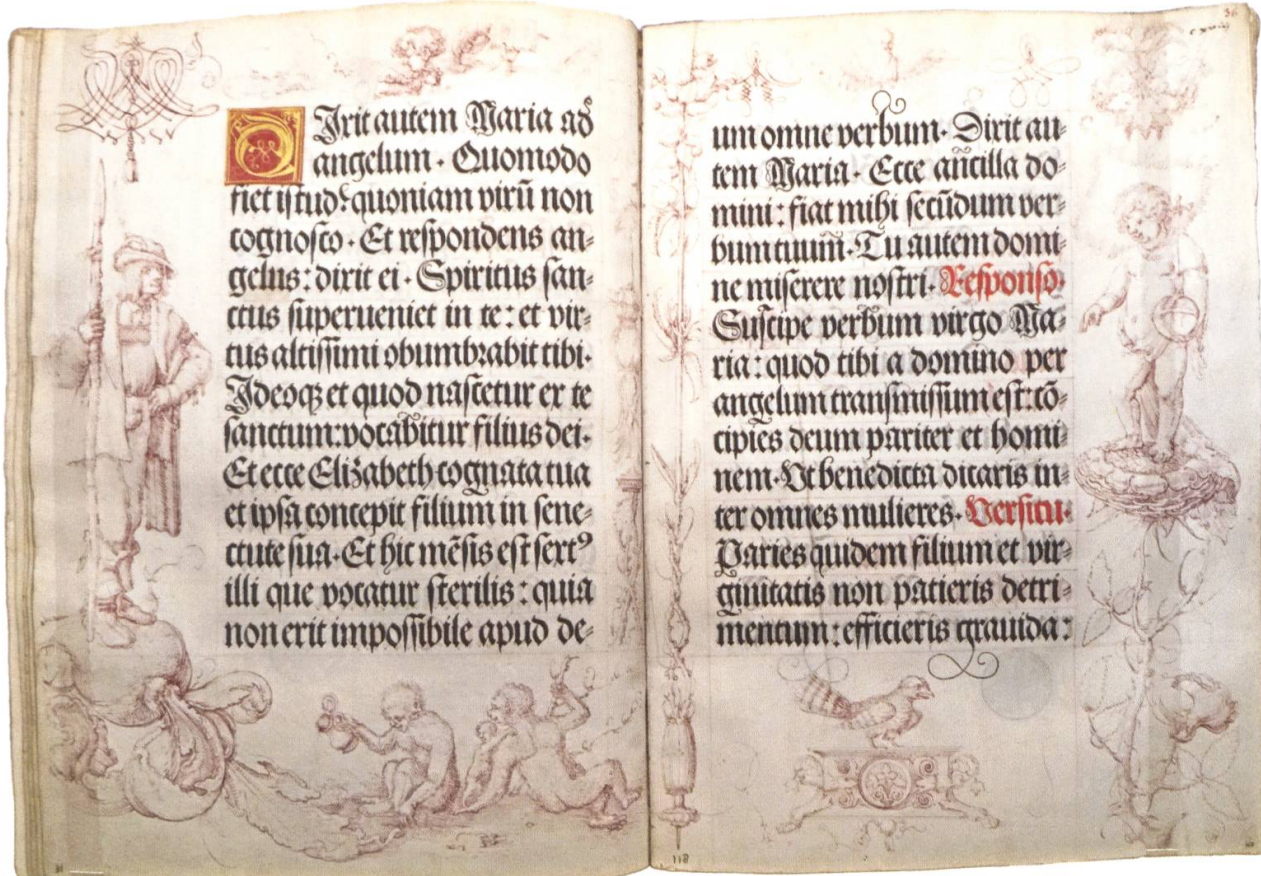 Dixit autem Maria ad
angelum · Quomodo
fiet istud? quoniam virū non
cognosco · Et respondens an-
gelus: dixit ei · Spiritus san-
ctus superueniet in te: et vir-
tus altissimi obumbrabit tibi·
Ideoqꝫ et quod nascetur ex te
sanctum: vocabitur filius dei·
Et ecce Elizabeth cognata tua
et ipsa concepit filium in sene-
ctute sua· Et hic mēsis est sextꝰ
illi que vocatur sterilis: quia
non erit impossibile apud de-
36
um omne verbum· Dixit au-
tem Maria · Ecce ancilla do-
mini: fiat mihi secūdum ver-
bum tuum· Tu autem domi-
ne miserere nostri· Responso·
Suscipe verbum virgo Ma-
ria: quod tibi a domino per
angelum transmissum est: cō-
cipies deum pariter et homi-
nem· Ut benedicta dicaris in-
ter omnes mulieres· Versicu·
Paries quidem filium et vir-
ginitatis non patieris detri-
mentum: efficieris grauida:
118